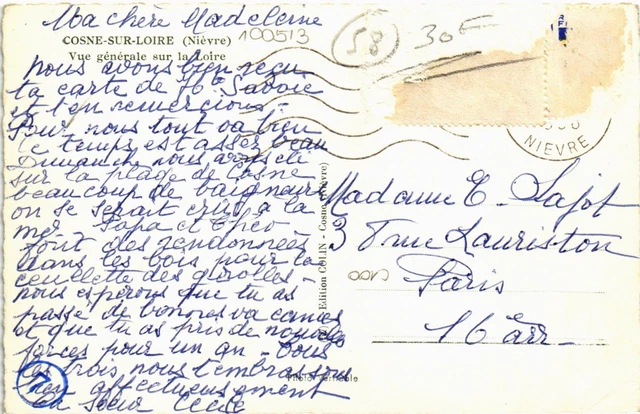 Ma chère Madeleine
COSNE-SUR-LOIRE (Nièvre)
Vue générale sur la Loire
100513
58
30F
nous avons bien reçu
ta carte de Hte Savoie
et t'en remercions.
Pour nous tout va bien
le temps est assez beau
Dimanche nous avons été
sur la plage de Cosne
beaucoup de baigneurs
on se serait crus à la
mer Papa et
font des randonnées
dans les bois pour la
cueillette des girolles
nous espérons que tu as
passé de bonnes vacances
et que tu as pris de nouvelles
forces pour un an - Tous
les trois nous t'embrassons
bien affectueusement
ta sœur Cécile
NIEVRE
Edition COLLIN - Cosne (Nièvre)
Madame E. Lajot
3 rue Lauriston
Paris
16 arr
Photo véritable